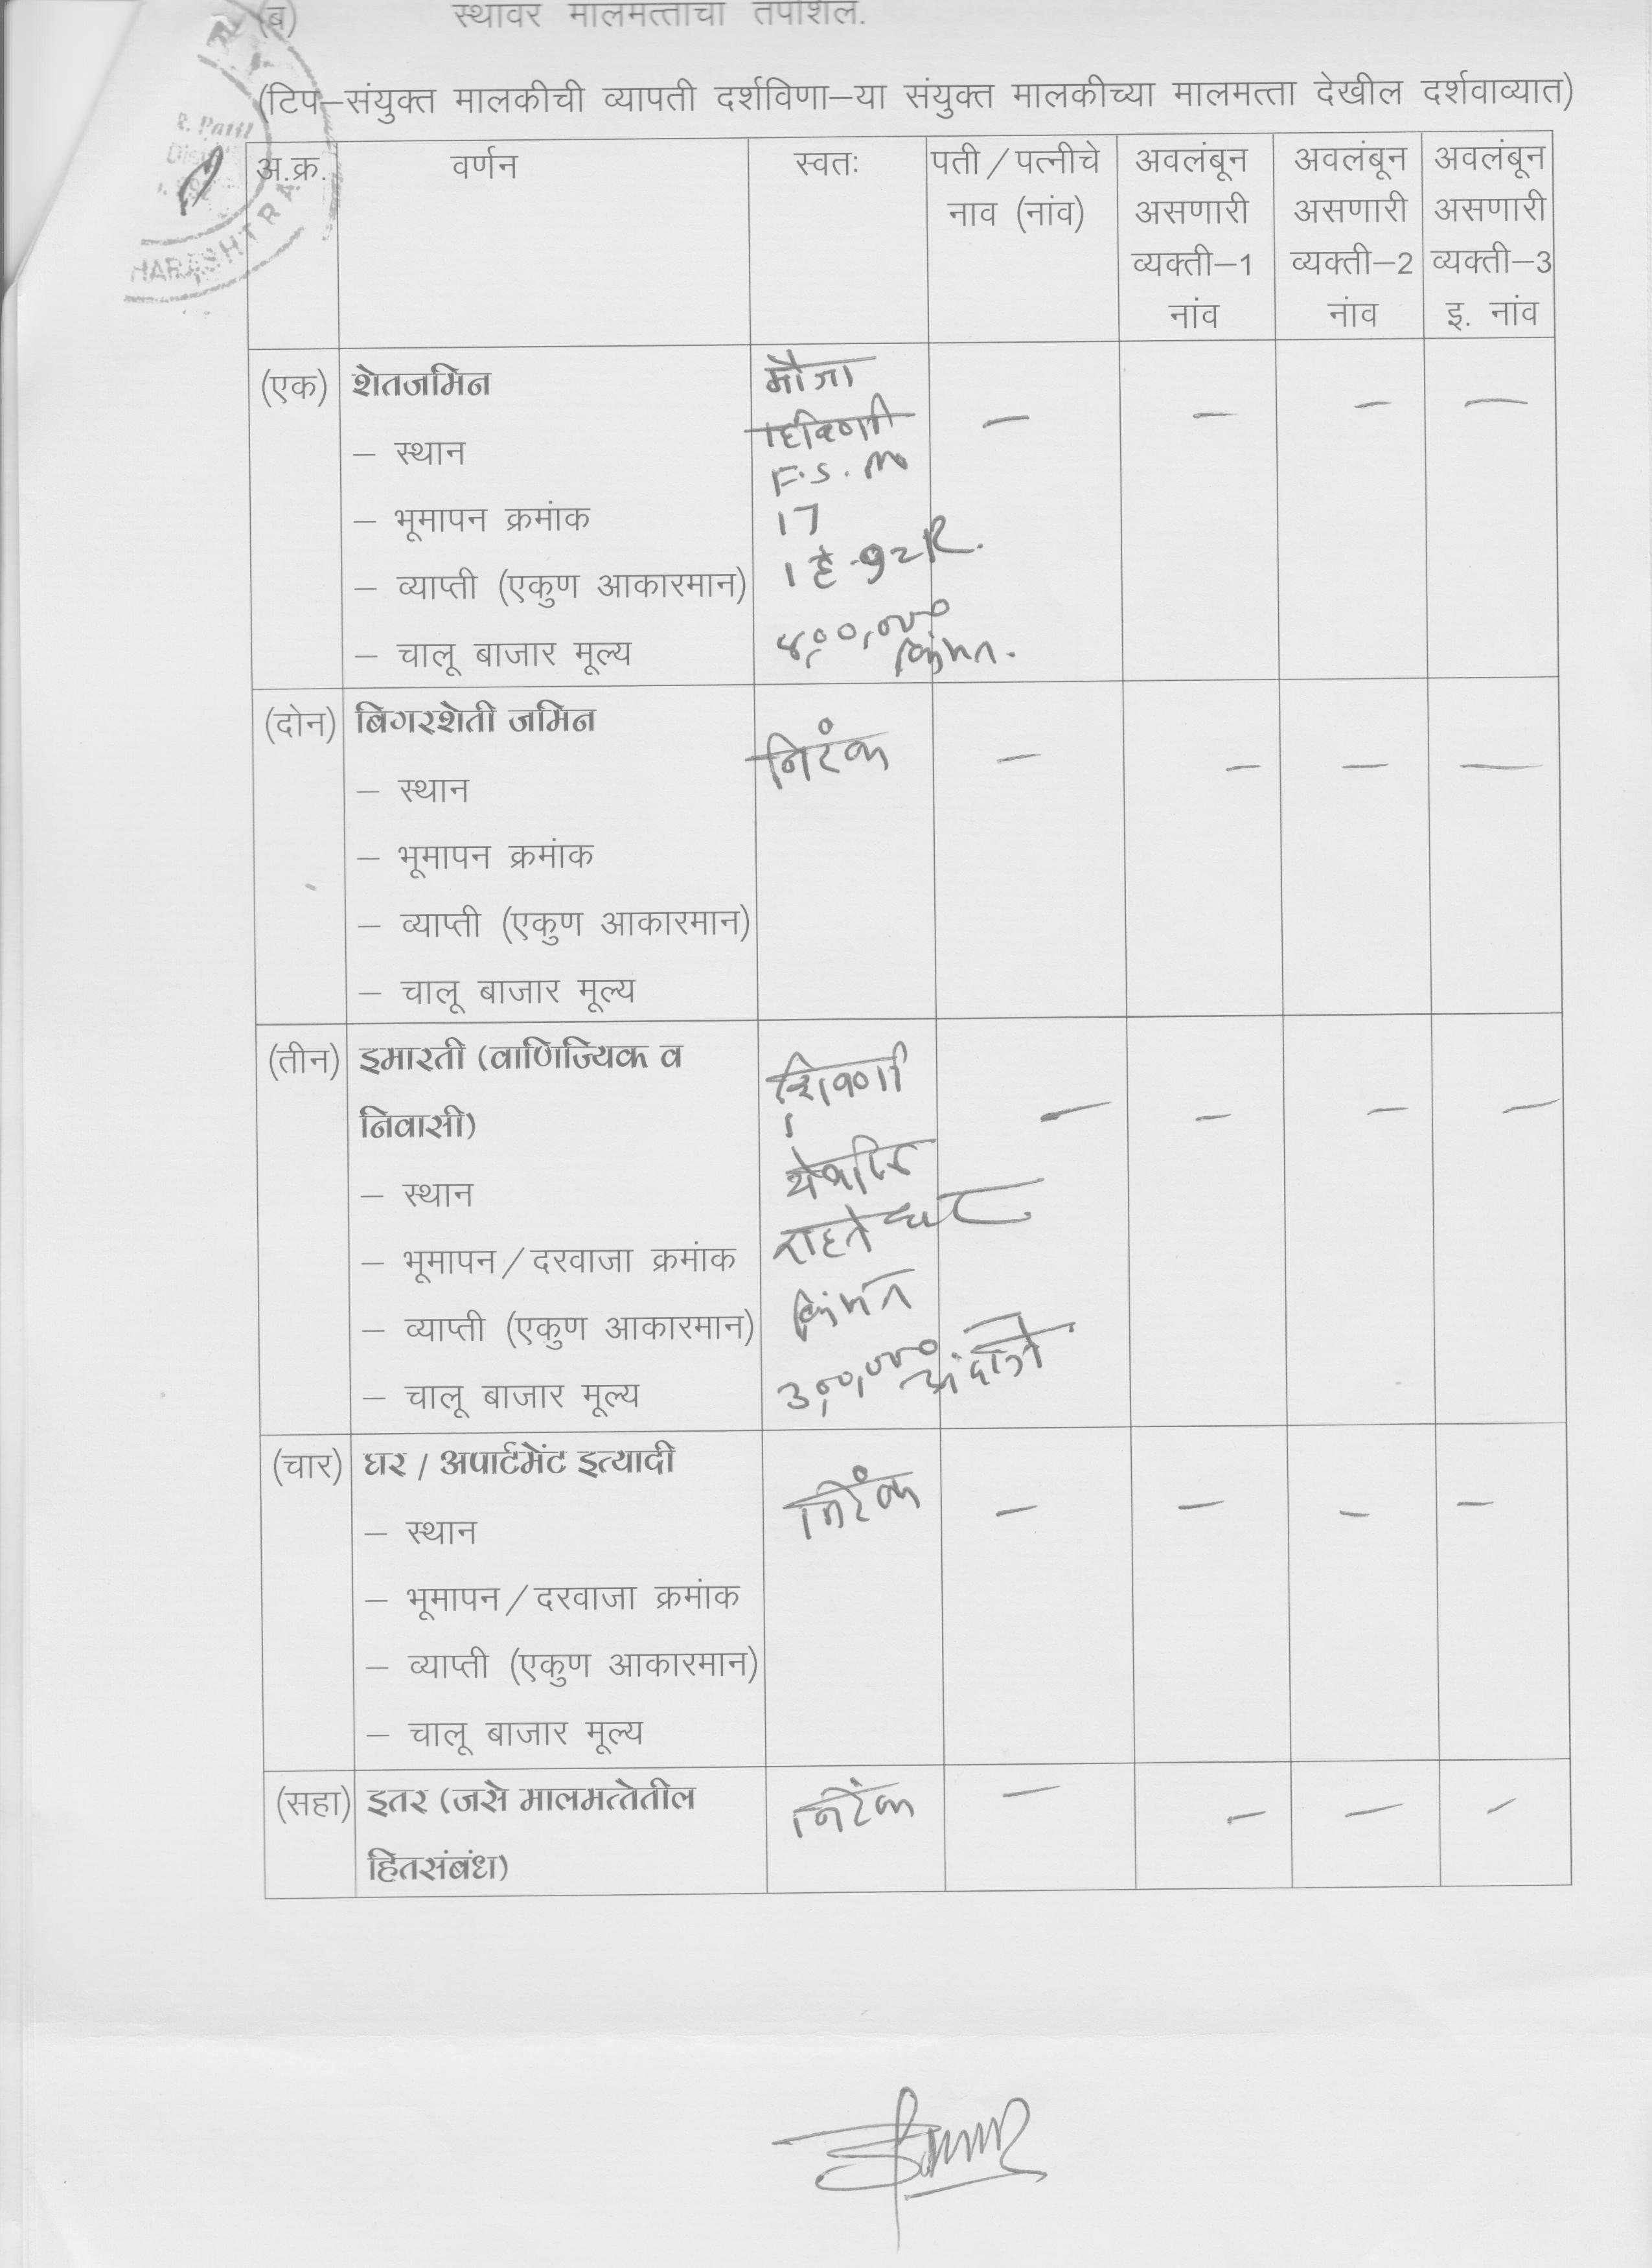 (ब) स्थावर मालमत्ताचा तपशिल.
(टिप–संयुक्त मालकीची व्यापती दर्शविणा–या संयुक्त मालकीच्या मालमत्ता देखील दर्शवाव्यात)
R. Patil
HARASHTRA
अ.क्र. वर्णन स्वतः पती/पत्नीचे नाव (नांव) अवलंबून असणारी व्यक्ती–1 नांव अवलंबून असणारी व्यक्ती–2 नांव अवलंबून असणारी व्यक्ती–3 इ. नांव
(एक) शेतजमिन मौजा — — — —
– स्थान
F.S. No
– भूमापन क्रमांक 17
– व्याप्ती (एकुण आकारमान) 1 हे ९२ R.
– चालू बाजार मूल्य ४,००,००० किंमत.
(दोन) बिगरशेती जमिन निरंक — — — —
– स्थान
– भूमापन क्रमांक
– व्याप्ती (एकुण आकारमान)
– चालू बाजार मूल्य
(तीन) इमारती (वाणिज्यिक व
निवासी) — — — —
– स्थान येथील
– भूमापन/दरवाजा क्रमांक राहते घर
– व्याप्ती (एकुण आकारमान) किंमत
– चालू बाजार मूल्य ३,००,००० अंदाजे
(चार) घर / अपार्टमेंट इत्यादी निरंक — — — —
– स्थान
– भूमापन/दरवाजा क्रमांक
– व्याप्ती (एकुण आकारमान)
– चालू बाजार मूल्य
(सहा) इतर (जसे मालमत्तेतील निरंक — — — —
हितसंबंध)